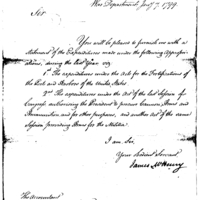 War Department, Jany 7, 1799
Sir
You will be pleased to furnish me with a
Statement of the Expenditures made under the following Appropri-
ations, during the last Year viz
1st The expenditures under the Act for the Fortifications of
the Ports and Harbors of the United States
2nd The expenditures under the Act of the last Session of
Congress authorising the President to procure Cannon, Arms and
Ammunition and for other purposes, and another Act of the same
Session providing Arms for the Militia
I am Sir
Your Obedient Servant
James McHenry
The Accountant